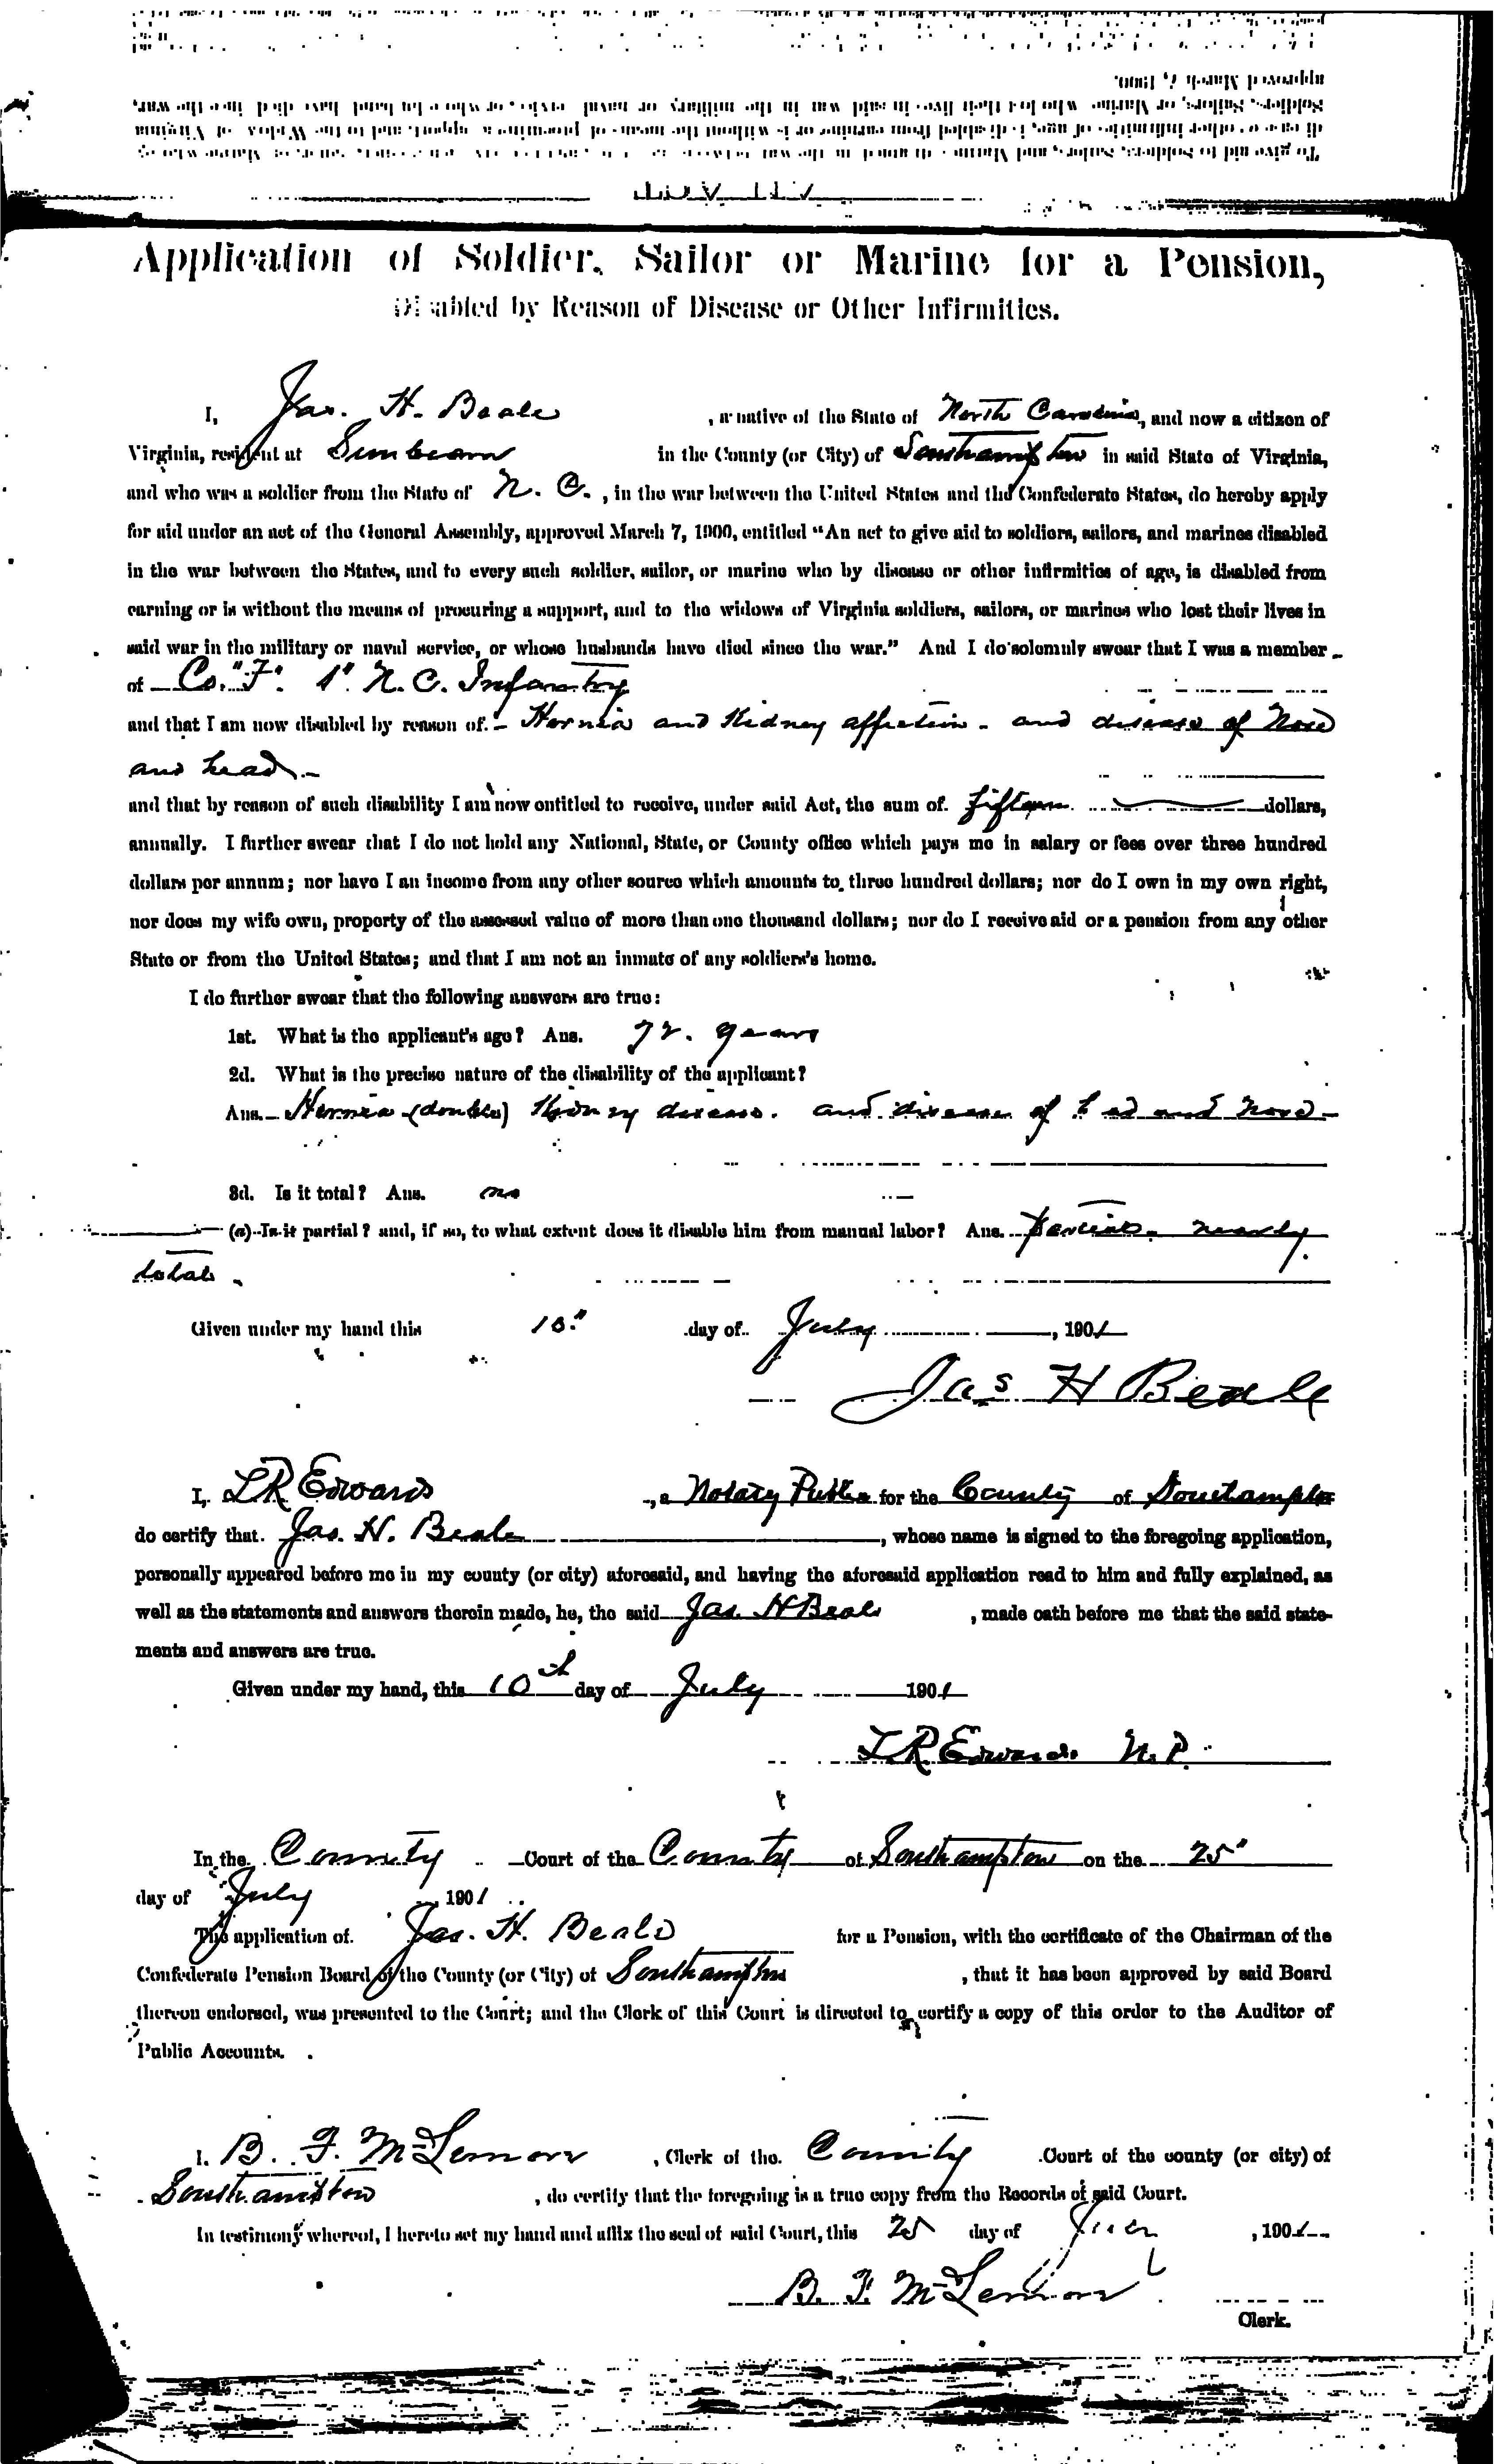 approved March 7, 1900.
Soldiers, Sailors, or Marines who lost their lives in said war in the military or naval service, or whose husbands have died since the war,
Application of Soldier, Sailor or Marine for a Pension,
Disabled by Reason of Disease or Other Infirmities.
I, Jas. H. Beale , a native of the State of North Carolina, and now a citizen of
Virginia, resident at Sunbeam in the County (or City) of Southampton in said State of Virginia,
and who was a soldier from the State of N. C. , in the war between the United States and the Confederate States, do hereby apply
for aid under an act of the General Assembly, approved March 7, 1900, entitled "An act to give aid to soldiers, sailors, and marines disabled
in the war between the States, and to every such soldier, sailor, or marine who by disease or other infirmities of age, is disabled from
earning or is without the means of procuring a support, and to the widows of Virginia soldiers, sailors, or marines who lost their lives in
said war in the military or naval service, or whose husbands have died since the war." And I do solemnly swear that I was a member
of Co. "F". 1" N. C. Infantry
and that I am now disabled by reason of - Hernia and Kidney affection - and disease of Nose
and head -
and that by reason of such disability I am now entitled to receive, under said Act, the sum of fifteen dollars,
annually. I further swear that I do not hold any National, State, or County office which pays me in salary or fees over three hundred
dollars per annum; nor have I an income from any other source which amounts to three hundred dollars; nor do I own in my own right,
nor does my wife own, property of the assessed value of more than one thousand dollars; nor do I receive aid or a pension from any other
State or from the United States; and that I am not an inmate of any soldiers's home.
I do further swear that the following answers are true:
1st. What is the applicant's age? Ans. 72. years
2d. What is the precise nature of the disability of the applicant?
Ans. Hernia (double) Kidney disease. and disease of head and Nose -
3d. Is it total? Ans. no
(a) Is it partial? and, if so, to what extent does it disable him from manual labor? Ans. Partial - nearly
total -
Given under my hand this 10" day of July , 1901
Jas H Beale
I, L R Edwards , a Notary Public for the County of Southampton
do certify that Jas. H. Beale , whose name is signed to the foregoing application,
personally appeared before me in my county (or city) aforesaid, and having the aforesaid application read to him and fully explained, as
well as the statements and answers therein made, he, the said Jas. H Beale , made oath before me that the said state-
ments and answers are true.
Given under my hand, this 10th day of July 1901
L R Edwards N. P.
In the County Court of the County of Southampton on the 25"
day of July , 1901
The application of Jas. H. Beale for a Pension, with the certificate of the Chairman of the
Confederate Pension Board of the County (or City) of Southampton , that it has been approved by said Board
thereon endorsed, was presented to the Court; and the Clerk of this Court is directed to certify a copy of this order to the Auditor of
Public Accounts.
I, B. F. McLemore , Clerk of the County Court of the county (or city) of
Southampton , do certify that the foregoing is a true copy from the Records of said Court.
In testimony whereof, I hereto set my hand and affix the seal of said Court, this 25 day of July , 1901
B. F. McLemore
Clerk.